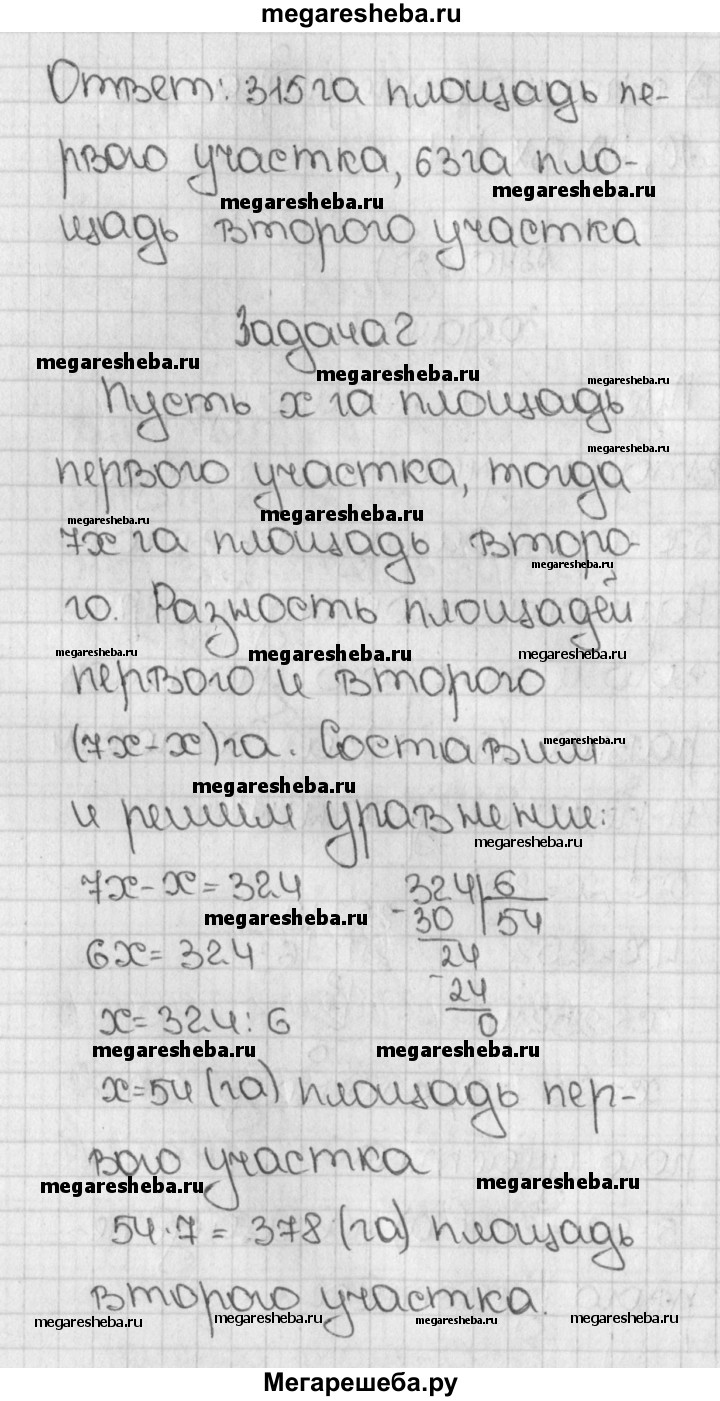 megaresheba.ru
Ответ: 315 га площадь пе-
рвого участка, 63 га пло-
megaresheba.ru megaresheba.ru
щадь второго участка
Задача 2
megaresheba.ru megaresheba.ru megaresheba.ru
Пусть x га площадь
megaresheba.ru
первого участка, тогда
megaresheba.ru megaresheba.ru
7x га площадь второ-
megaresheba.ru
го. Разность площадей
megaresheba.ru megaresheba.ru megaresheba.ru
первого и второго
(7x-x) га. Составим
megaresheba.ru
megaresheba.ru
и решим уравнение:
megaresheba.ru
7x-x=324 324|6
megaresheba.ru -30 |54
6x=324 24
-24
x=324:6 0
megaresheba.ru megaresheba.ru
x=54 (га) площадь пер-
вого участка
megaresheba.ru megaresheba.ru
54·7=378 (га) площадь
второго участка.
megaresheba.ru megaresheba.ru megaresheba.ru megaresheba.ru
Мегарешеба.ру